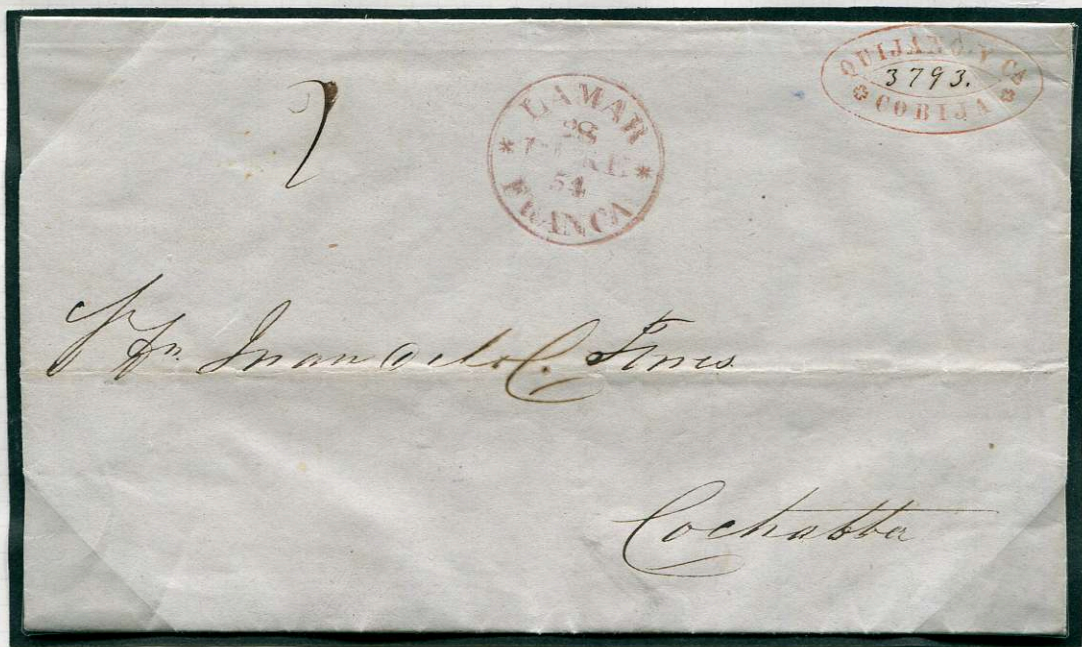 QUIJANO Y CA
3793.
COBIJA
LAMAR
28
54
FRANCA
Sr Dn. Juan de la C.
Cochabba